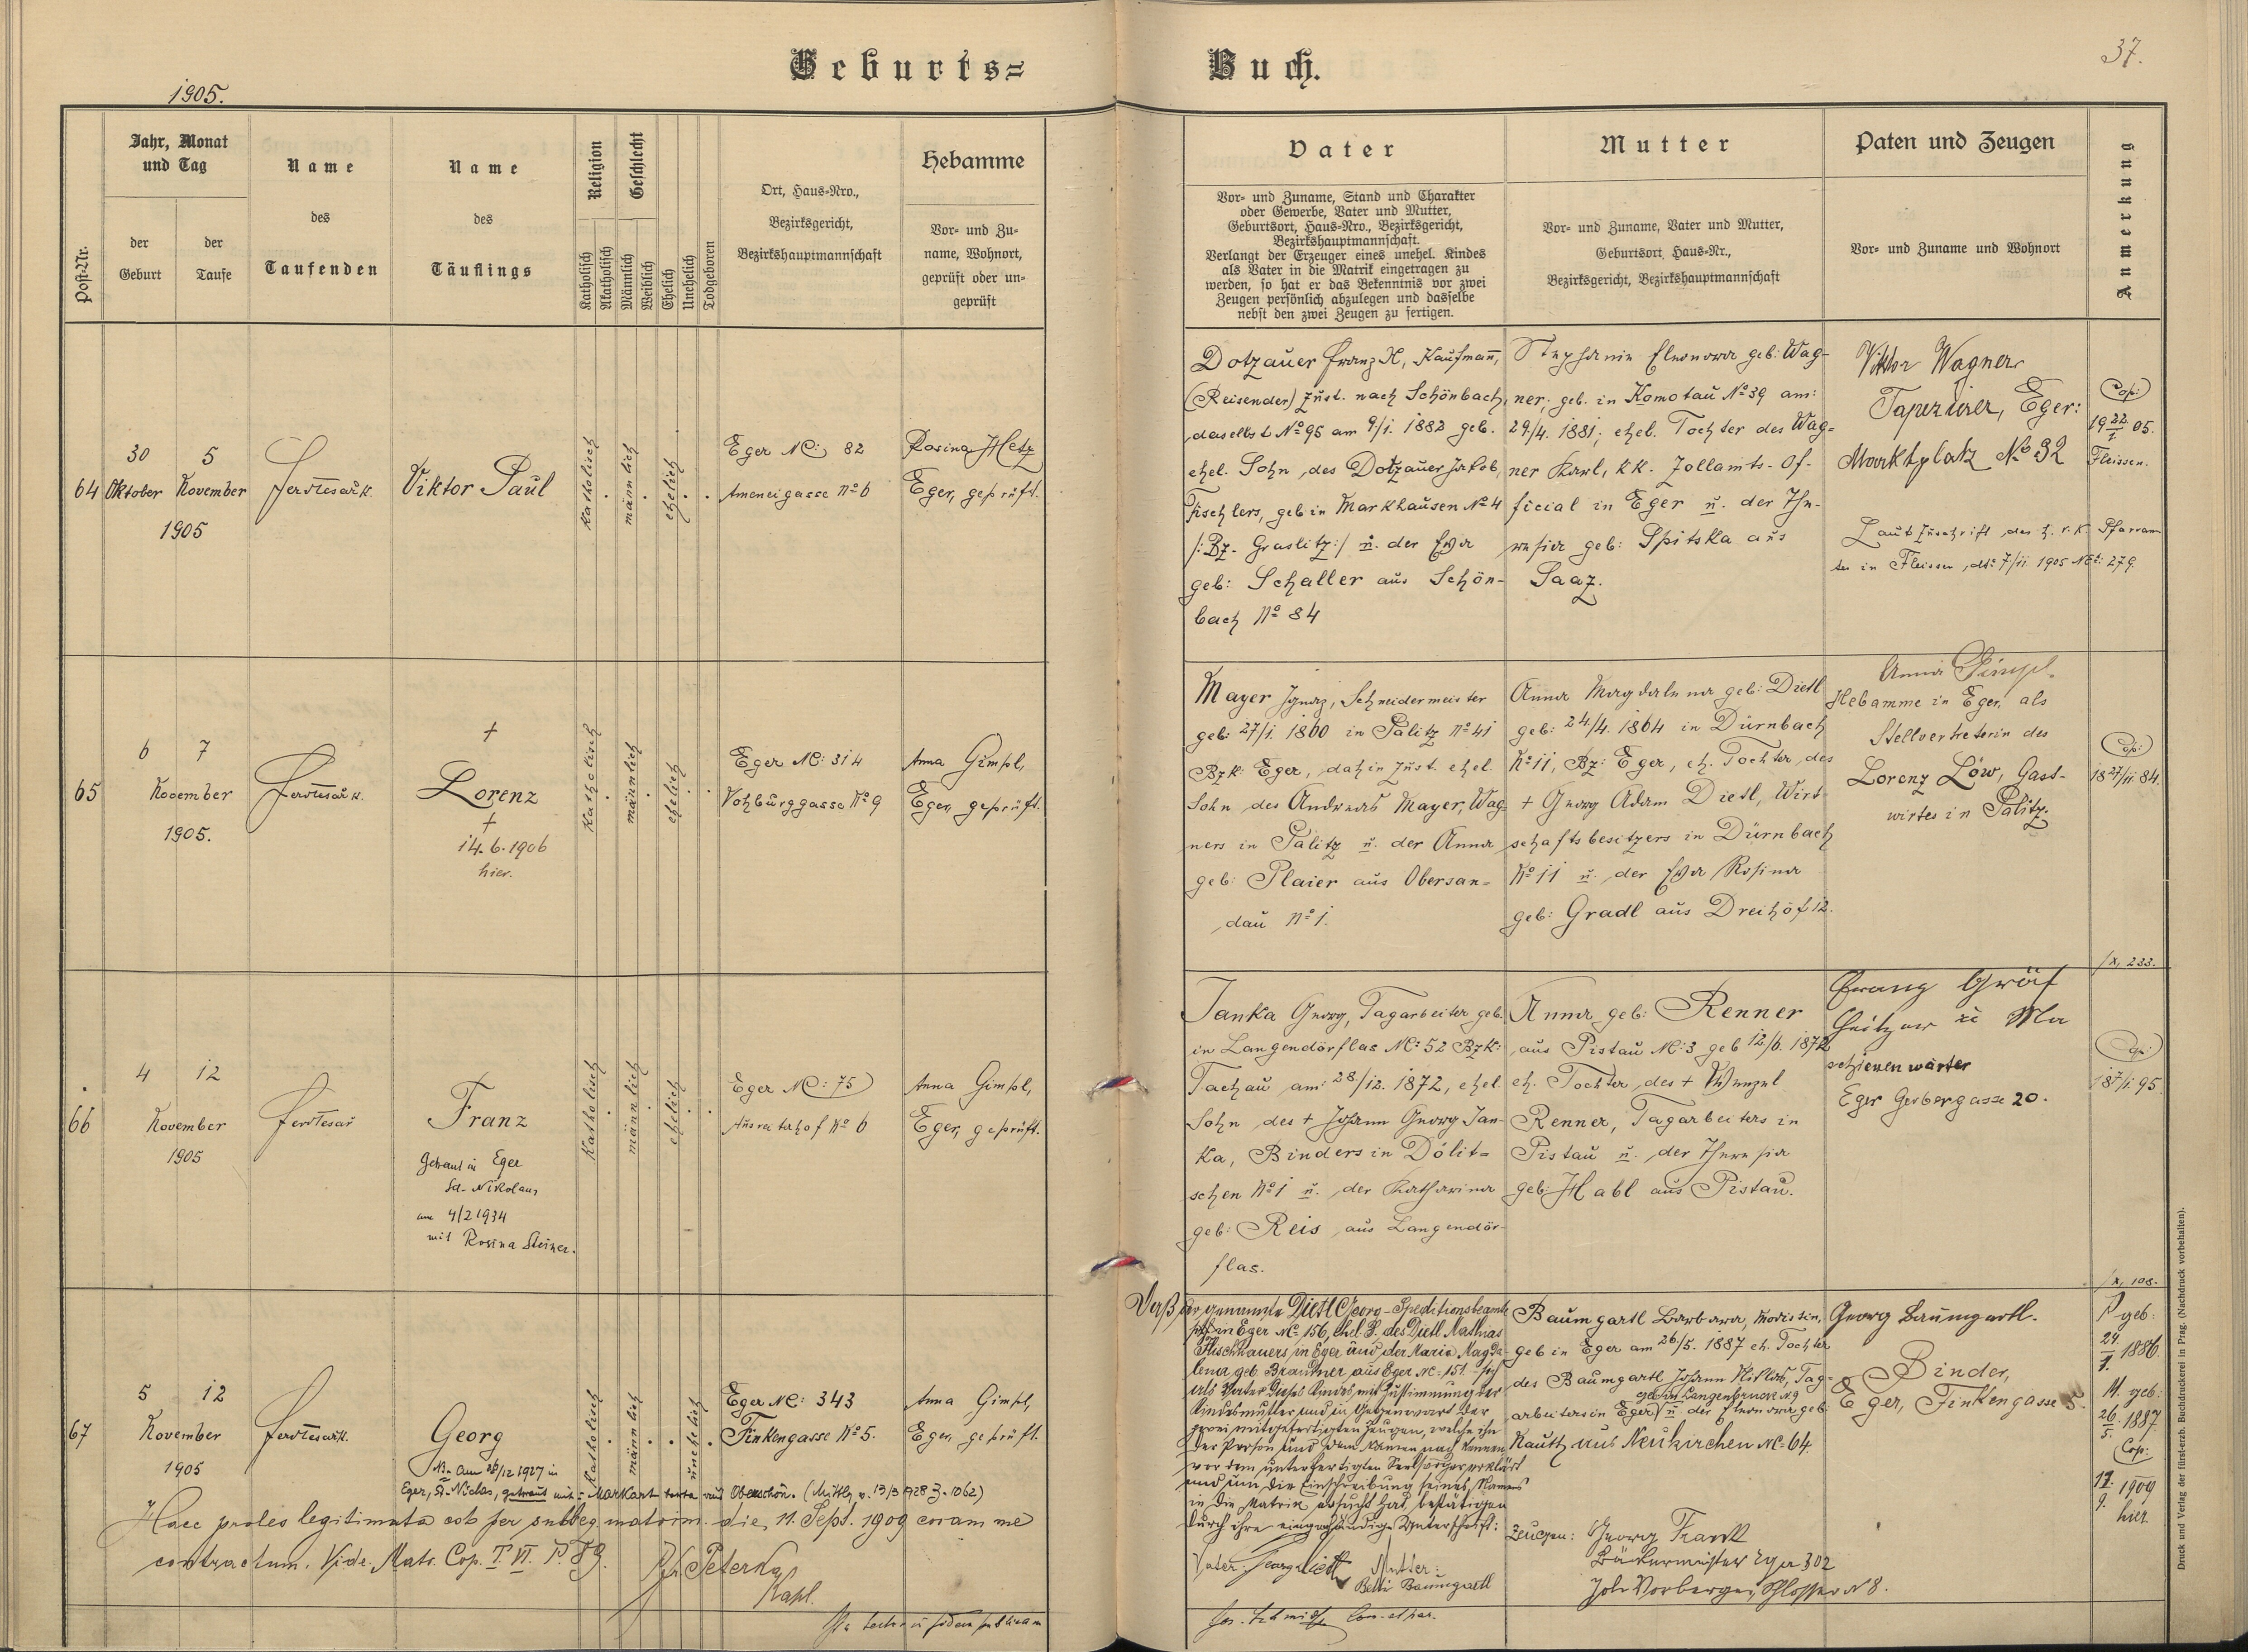 Geburts=
Buch.
37.
1905.
Post-Nr.
Jahr, Monat
und Tag
der
Geburt
der
Taufe
Name
des
Taufenden
Name
des
Täuflings
Religion
Katholisch
Akatholisch
Geschlecht
Männlich
Weiblich
Ehelich
Unehelich
Todgeboren
Ort, Haus-Nro.,
Bezirksgericht,
Bezirkshauptmannschaft
Hebamme
Vor- und Zu-
name, Wohnort,
geprüft oder un-
geprüft
Vater
Vor- und Zuname, Stand und Charakter
oder Gewerbe, Vater und Mutter,
Geburtsort, Haus-Nro., Bezirksgericht,
Bezirkshauptmannschaft.
Verlangt der Erzeuger eines unehel. Kindes
als Vater in die Matrik eingetragen zu
werden, so hat er das Bekenntnis vor zwei
Zeugen persönlich abzulegen und dasselbe
nebst den zwei Zeugen zu fertigen.
Mutter
Vor- und Zuname, Vater und Mutter,
Geburtsort, Haus-Nr.,
Bezirksgericht, Bezirkshauptmannschaft
Paten und Zeugen
Vor- und Zuname und Wohnort
Anmerkung
64
30 5
Oktober November
1905
Viktor Paul
katholisch
männlich
ehelich
Eger NC: 82
Ameneigasse No 6
Rosina Hetz
Eger, geprüft.
Dotzauer Franz X, Kaufmann,
(Reisender) zust. nach Schönbach,
daselbst No 95 am 9/1. 1882 geb.
ehel. Sohn des Dotzauer Jakob,
Tischlers, geb in Markhausen No 4
/:Bz. Graslitz:/ u. der Eva
geb: Schaller aus Schön-
bach No 84
Stephanie Eleonora geb: Wag-
ner; geb. in Komotau No 39 am:
29/4. 1881; ehel. Tochter des Wag=
ner Karl, kk. Zollamts-Of-
ficial in Eger u. der The-
resia geb: Spitska aus
Saaz.
Viktor Wagner
Tapezierer, Eger:
Marktplatz No 32
Laut Zuschrift des h. r. k. Pfarram
tes in Fleissen, dto 7/11. 1905 NE: 279.
Cop:
19 22/1. 05.
Fleissen.
65
6 7
November
1905.
+
Lorenz
+
14.6.1906
hier.
katholisch
männlich
ehelich
Eger NC: 314
Vohburggasse No 9
Anna Gimpl,
Eger, geprüft.
Mayer Ignaz, Schneidermeister
geb: 27/1. 1860 in Palitz No 41
Bzk: Eger, dahin zust. ehel.
Sohn des Andreas Mayer, Wag-
ners in Palitz u. der Anna
geb: Plaier aus Obersan=
dau No 1.
Anna Magdalena geb: Dietl
geb: 24/4. 1864 in Dürnbach
No 11, Bz: Eger, eh. Tochter des
+ Georg Adam Dietl, Wirt=
schaftsbesitzers in Dürnbach
No 11 u. der Eva Rosina
geb: Gradl aus Dreihöf 12.
Anna Gimpl.
Hebamme in Eger, als
Stellvertreterin des
Lorenz Löw, Gast-
wirtes in Palitz.
Cop:
18 27/11 84.
66
4 12
November
1905
Franz
Getraut in Eger
Sd. Nikolaus
am 4/2 1934
mit Rosina Steiner.
katholisch
männlich
ehelich
Eger NC: 75
No 6
Anna Gimpl,
Eger, geprüft.
Janka Georg, Tagarbeiter geb.
in Langendörflas NC: 52 Bzk:
Tachau am: 28/12. 1872, ehel.
Sohn des + Johann Georg Jan-
ka, Binders in Dölit=
schen No 1 u. der Katharina
geb: Reis aus Langendör-
flas.
Anna geb: Renner
aus Pistau NC: 3 geb 12/6. 1872
eh. Tochter des + Wenzel
Renner, Tagarbeiters in
Pistau u. der Theresia
geb: Habl aus Pistau.
/X, 233.
Franz Gräf
Heitzer u Ma
schienenwärter
Eger Gerbergasse 20.
Cop:
18 7/1. 95.
67
5 12
November
1905
Georg
NB. am 26/12 1927 in
Eger, St. Niclas, getraut mit: Markart aus Oberschön. (Mittlg v. 13/3 1928 Z. 1062)
katholisch
männlich
unehelich
Eger NC: 343
Finkengasse No 5.
Anna Gimpl,
Eger, geprüft.
Haec proles legitimata est per subseq. matrim. die 11. Sept. 1909 coram me
contractum. Vide Matr. Cop. T. VI. P. 89.
Peterka
Kapl.
Daß der genannte Dietl Georg - Speditionsbeamter
in Eger NC: 156, ehel. S. des Dietl Mathias
Fleischhauers in Eger und der Maria Magda-
lena geb. Brandtner aus Eger NC: 151. sich
als Vater dieses Kindes mit Zustimmung der
Kindesmutter und in Gegenwart der
zwei mitgefertigten Zeugen, welche ihn
der Person und dem Namen nach kennen
vor dem unterfertigten Seelsorger erklärt
und um die Einschreibung seines Namens
in die Matrik ersucht hat, bestätigen
durch ihre eigenhändige Unterschrift:
Vater: Georg Dietl Mutter:
Betti Baumgartl
Baumgartl Barbara, Modistin,
geb in Eger am 26/5. 1887 eh. Tochter
des Baumgartl Johann Tag-
geb. in Langenbruck N. 9
arbeiters in Eger u. der Eleonora geb
Rauth aus Neukirchen NC: 64.
Zeugen: Georg Frank
Bäckermeister Eger 302
Joh. Vorberger, Schlosser N 8.
Georg Baumgartl.
Binder,
Eger, Finkengasse 5.
/X, 108.
P geb:
24/1. 1886.
M. geb:
26/5. 1887
Cop:
11/9. 1909
hier.
Druck und Verlag der fürst-erzb. Buchdruckerei in Prag. (Nachdruck vorbehalten).